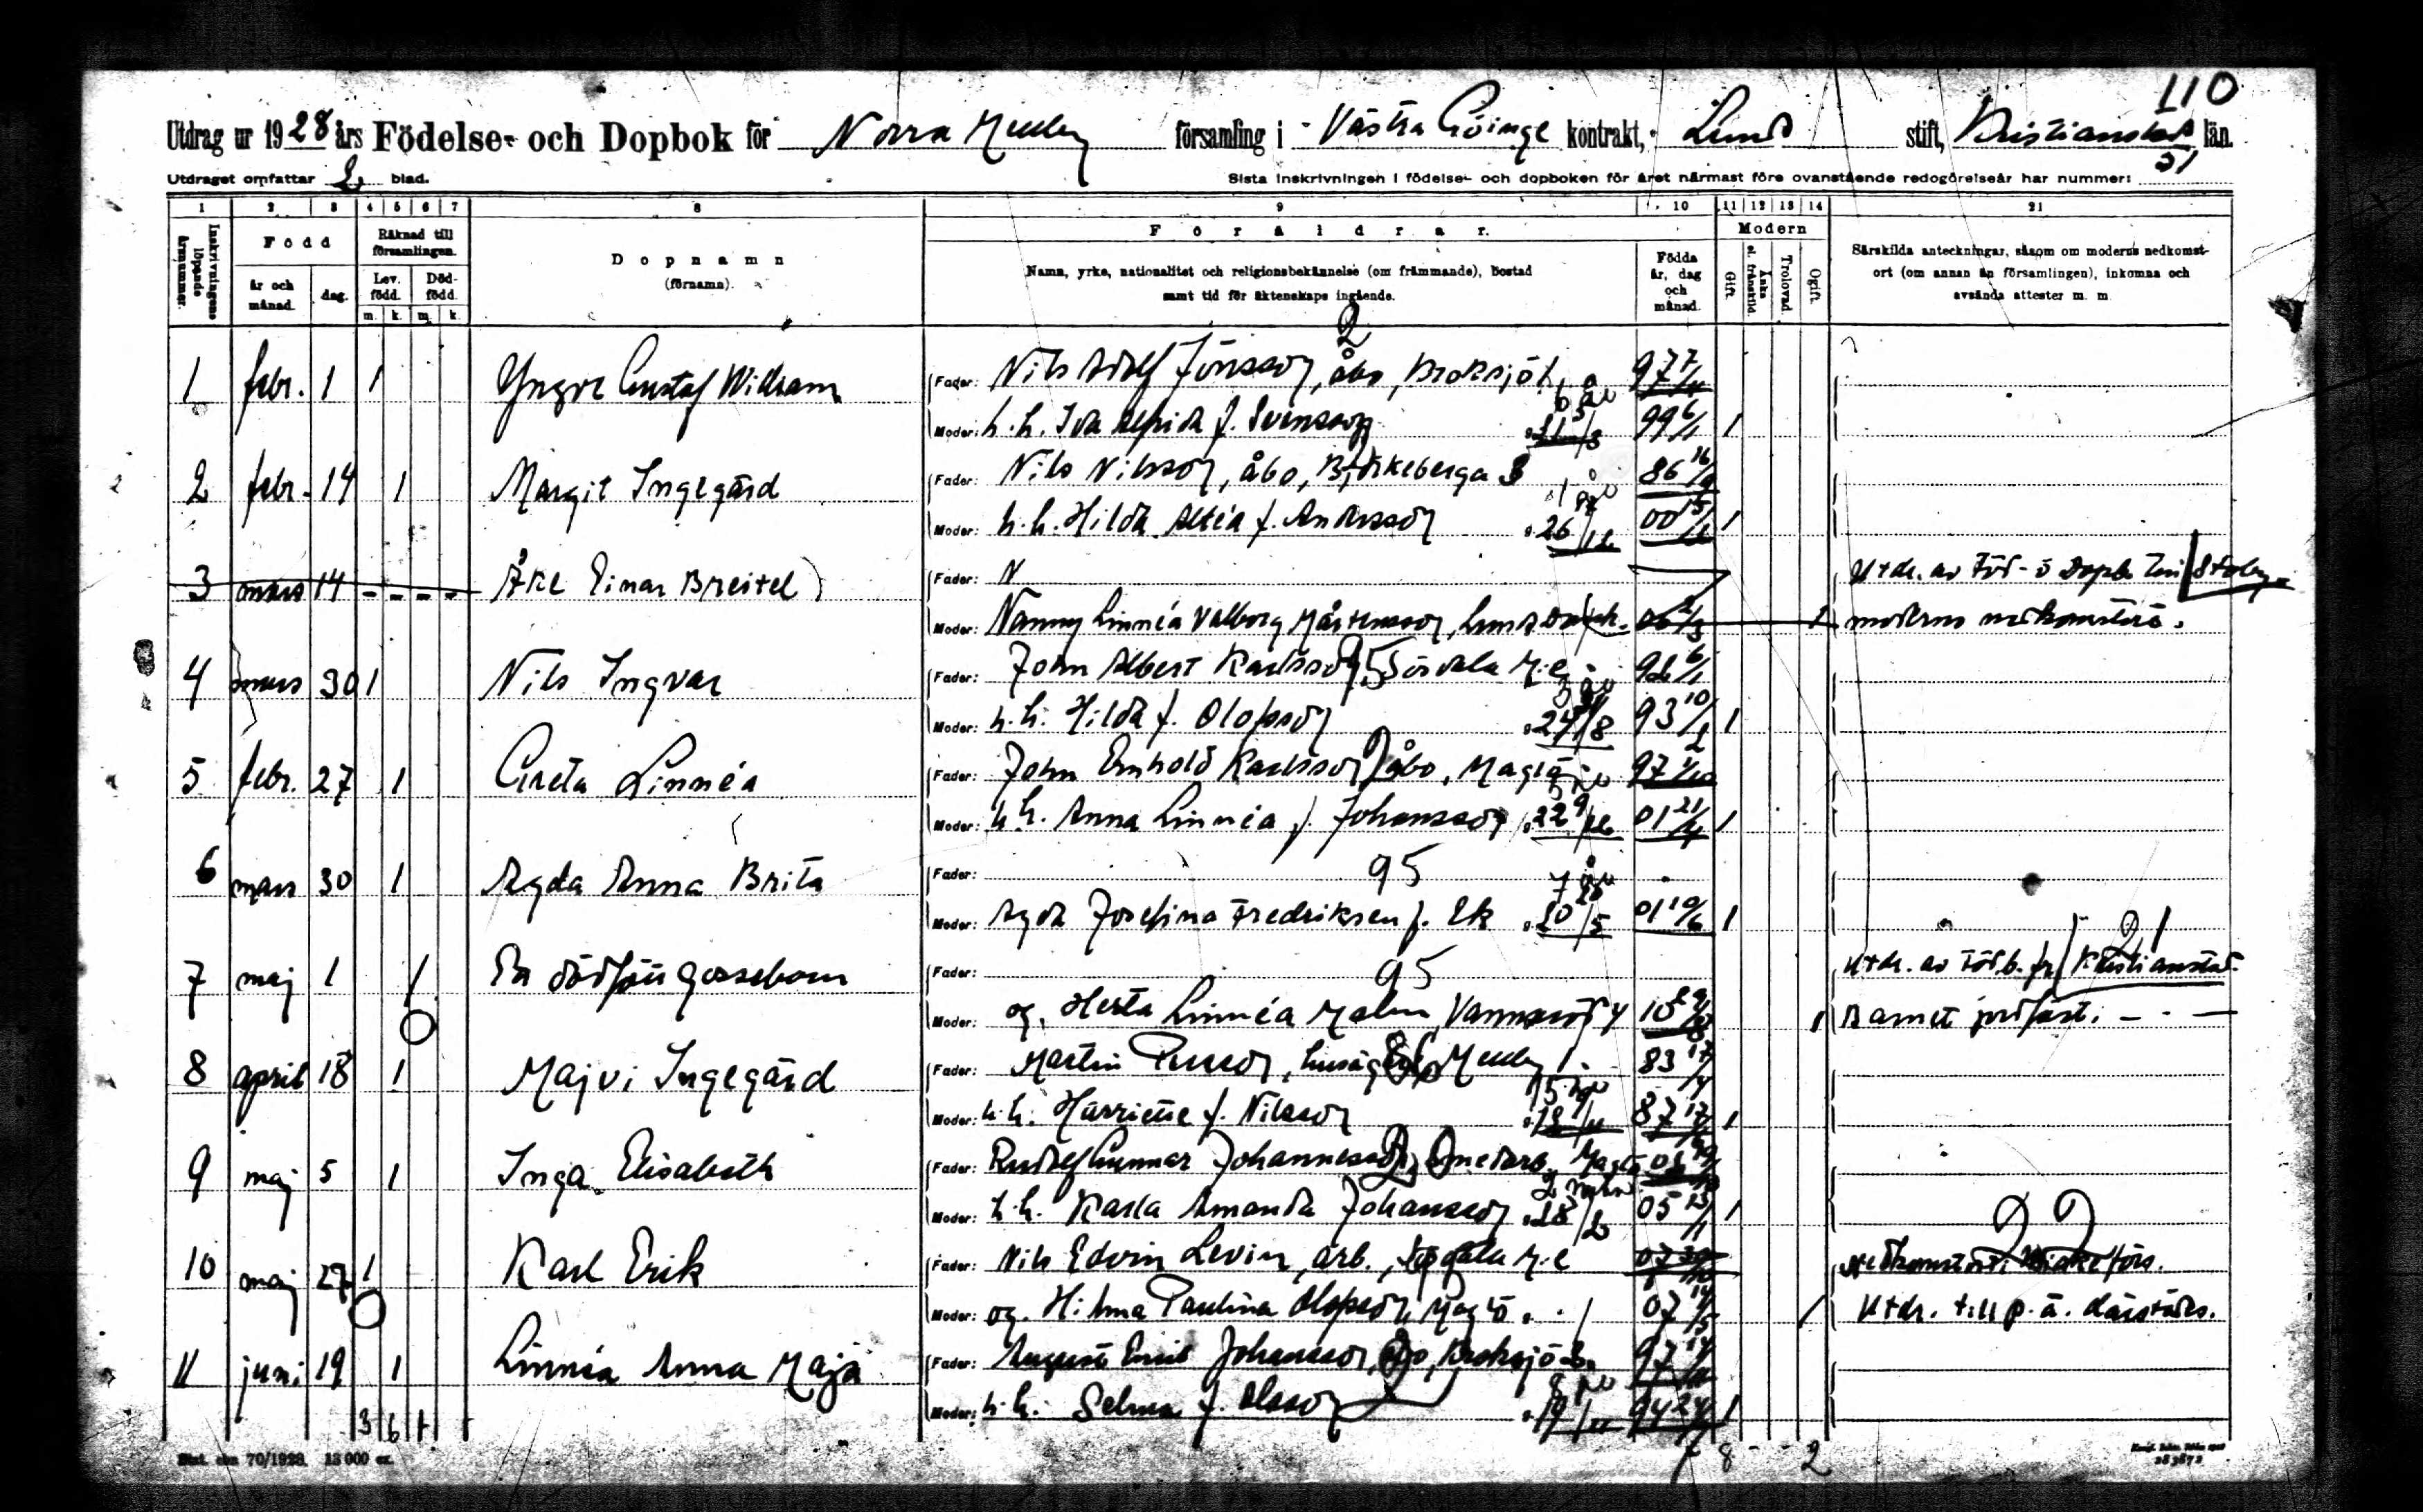 110
Utdrag ur 1928 års Födelse- och Dopbok för Norra Melby församling i Västra Göinge kontrakt, Lunds stift, Kristianstads län.
Utdraget omfattar 2 blad. Sista inskrivningen i födelse- och dopboken för året närmast före ovanstående redogörelseår har nummer: 51
1 2 3 4 5 6 7 8 9 10 11 12 13 14 21
Inskrivningens löpande årsnummer.
Född
år och månad. dag.
Räknad till församlingen.
Lev. född. Död-född.
m. k. m. k.
Dopnamn
(förnamn).
Föräldrar.
Namn, yrke, nationalitet och religionsbekännelse (om främmande), bostad
samt tid för äktenskaps ingående.
Födda år, dag och månad.
Modern
Gift. Änka el. frånskild. Trolovad. Ogift.
Särskilda anteckningar, såsom om moderns nedkomst-
ort (om annan än församlingen), inkomna och
avsända attester m. m.
2
1 febr. 1 1 Yngve Gustaf William Fader: Nils Adolf Jönsson, åbo, Broksjö 1, 97 7/11
Moder: h. h. Ida Alfrida f. Svensson 6 år 21 5/3 99 6/1 1
2 febr. 14 1 Margit Ingegärd Fader: Nils Nilsson, åbo, Björkeberga 3 86 16/9
Moder: h. h. Hilda Altea f. Andersson 1 år 26 /12 00 5/12 1
3 mars 14 - - - - Åke Einar Breitel) Fader: N Utdr. av Föd- o Dopb. från Stoby
Moder: Nanny Linnéa Valborg Mårtensson, 06 2/3 1 moderns nedkomstort.
4 mars 30 1 Nils Ingvar Fader: John Albert Karlsson, Sösdala M:e 92 6/1
Moder: h. h. Hilda f. Olofsson 24 /8 93 10/2 1
5 febr. 27 1 Greta Linnéa Fader: John Emhold Karlsson, åbo, Maglö 97 1/10
Moder: h. h. Anna Linnéa f. Johansson 5 år 22 9/12 01 21/4 1
6 mars 30 1 Agda Anna Brita Fader: 95
Moder: Agda Josefina Fredriksen f. Ek 7 år 20 /5 01 10/6 1
21
7 maj 1 1 En dödfödd gossebarn Fader: 95 Utdr. av födb. fr. Kristianstad.
Moder: og. Herta Linnéa Malm, Vannaröd 4 1 Barnet jordfäst.
8 april 18 1 Majvi Ingegärd Fader: Martin Persson, husäg., Melby 1 83 17/4
Moder: h. h. Harriette f. Nilsson 15 år /11 87 1
9 maj 5 1 Inga Elisabeth Fader: Rudolf Gunnar Johannesson, Maglö
Moder: h. h. Karla Amanda Johansson 28 /2 05 13/11 1
22
10 maj 27 1 Karl Erik Fader: Nils Edvin Levin, arb., Sösdala M:e Nedkomstort: Vinke förs.
Moder: og. Hilma Paulina Olofsson, Maglö 07 14/5 1 Utdr. till p. ä. därstädes.
11 juni 19 1 Linnéa Anna Maja Fader: August Emil Johansson, åbo, Broksjö 2. 97 14/12
Moder: h. h. Selma f. Olsson 8 år 19 /11 94 1
3 6 1 8 - - 2
Stat. cbn 70/1928. 13 000 ex.